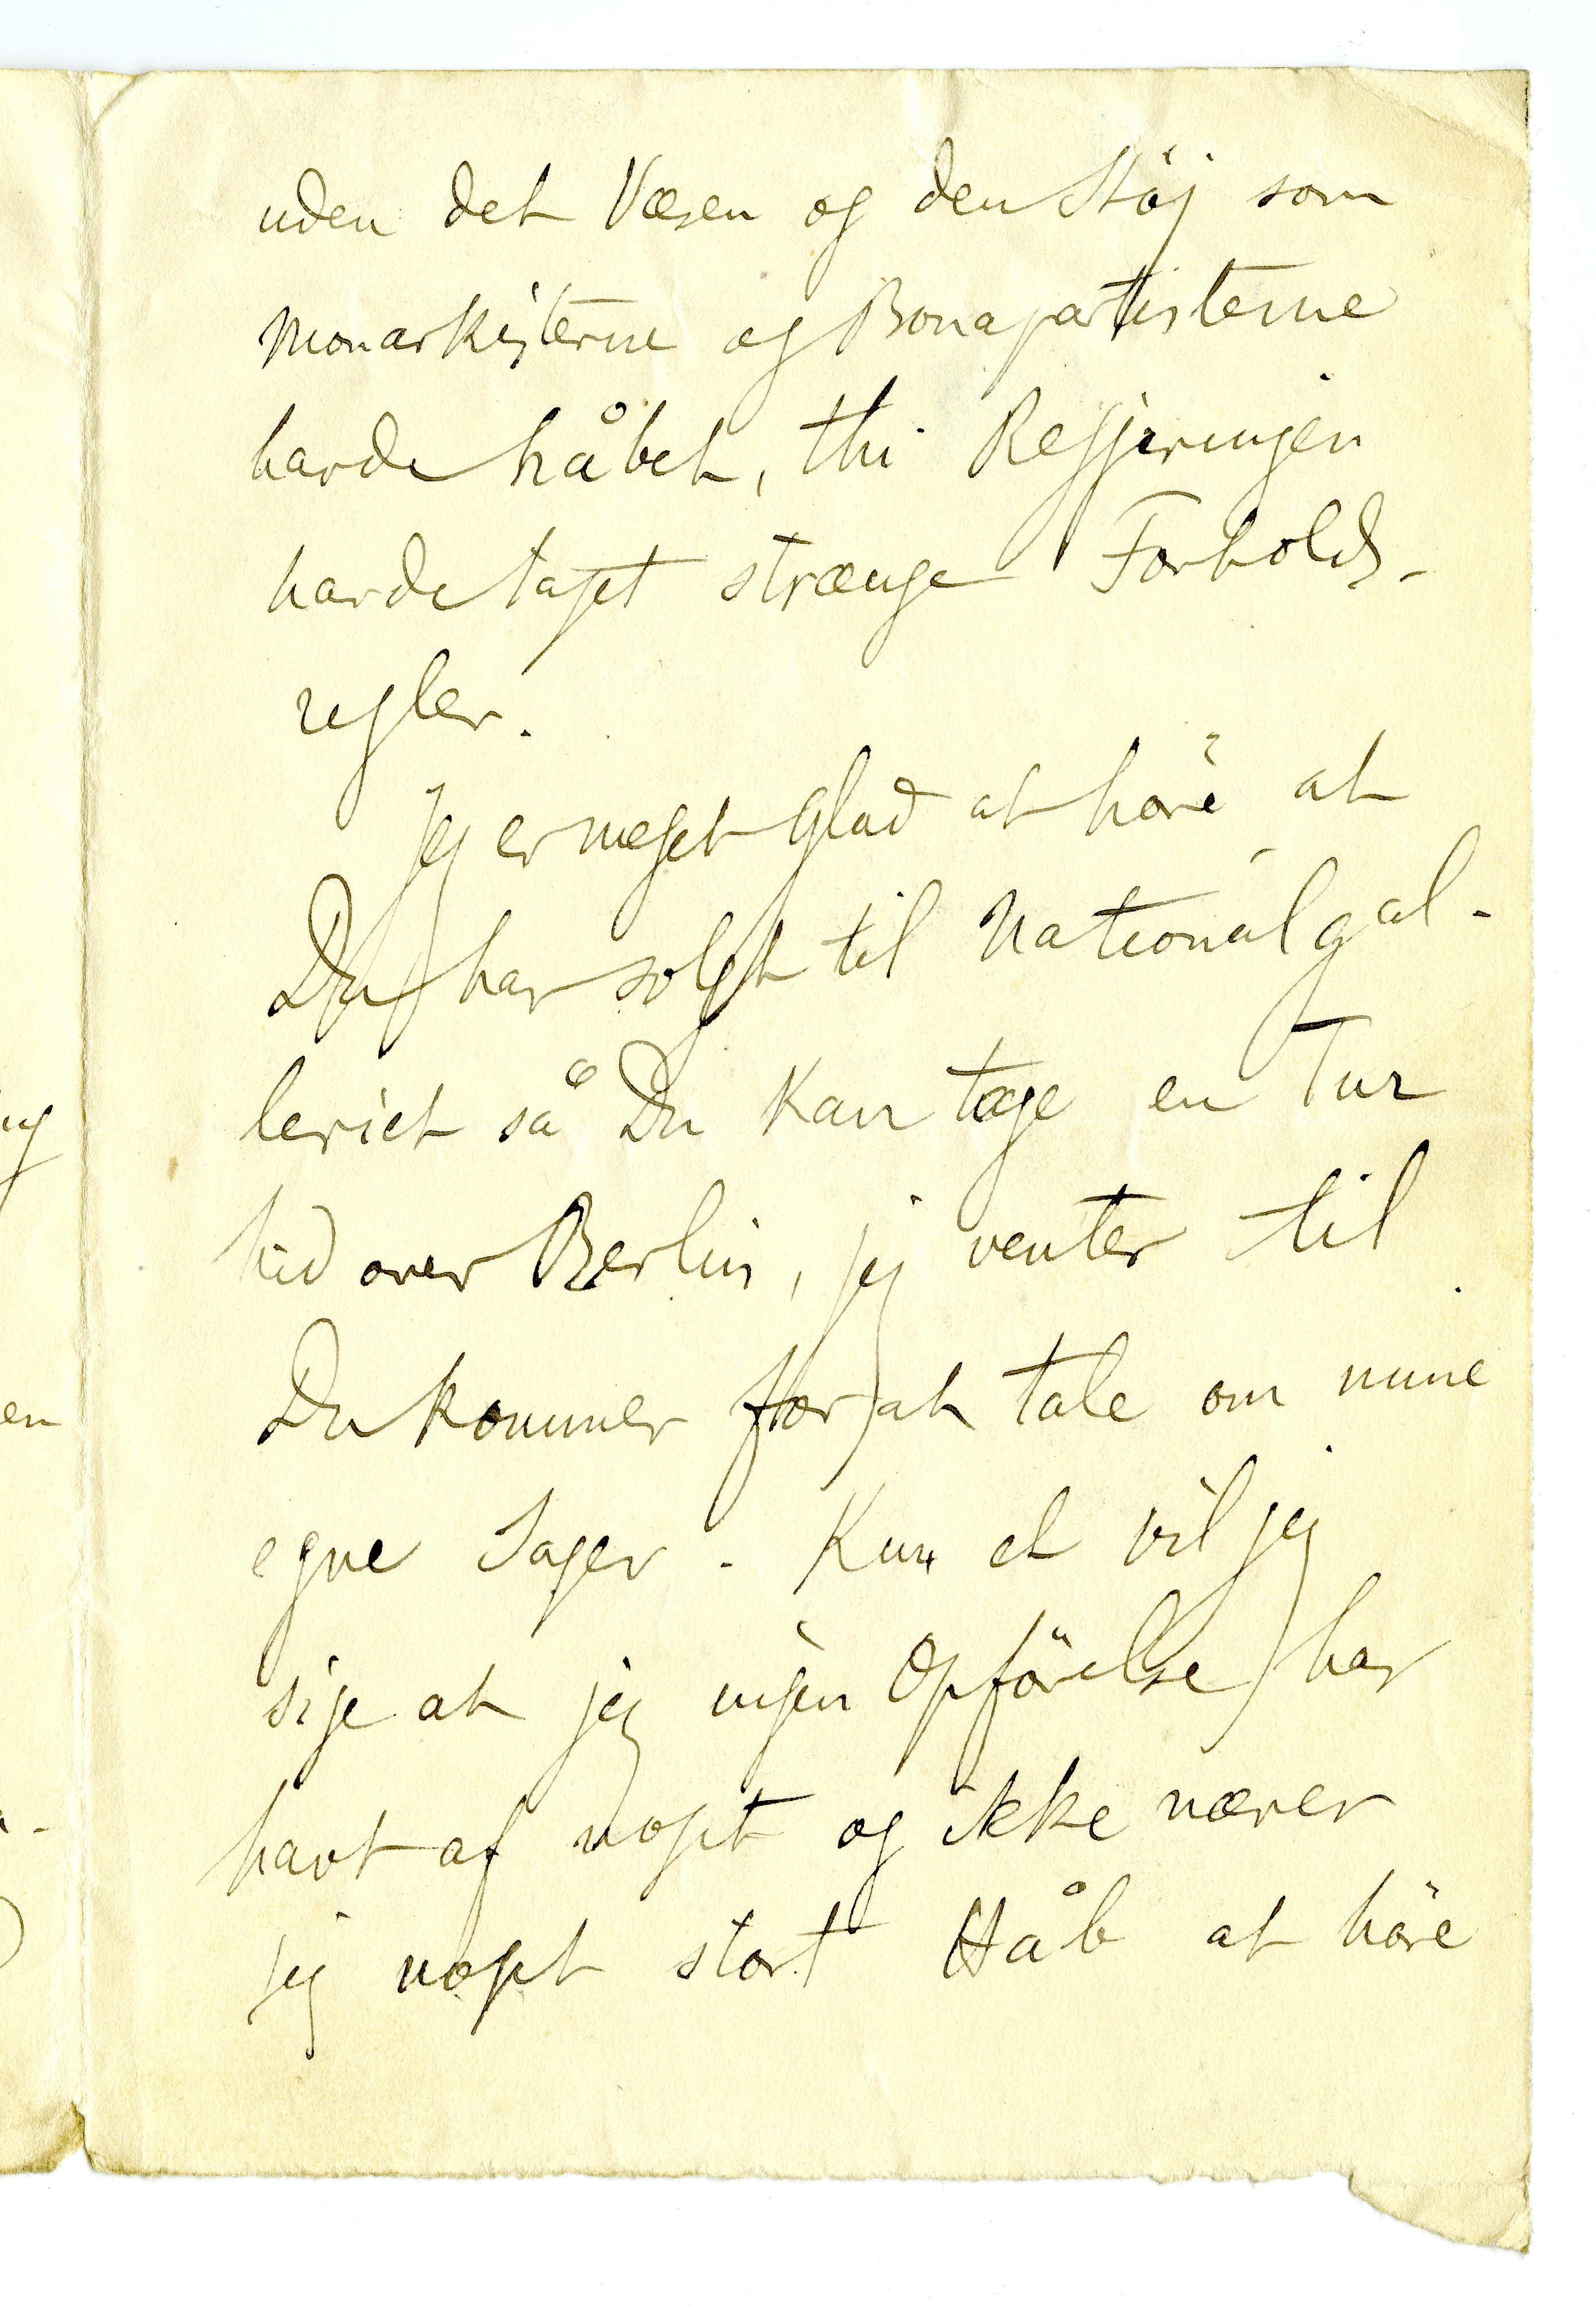 uden det Væsen og den Støj som
Monarkisterne og Bonapartisterne
havde håbet, thi Regjeringen
havde taget strænge Forholds-
regler.
Jeg er meget glad at høre at
Du har solgt til Nationalgal-
leriet så Du kan tage en Tur
hid over Berlin, jeg venter til
Du kommer for at tale om mine
egne Sager. Kun et vil jeg
sige at jeg ingen Opförelse har
havt af noget og ikke nærer
jeg noget stort Håb at höre